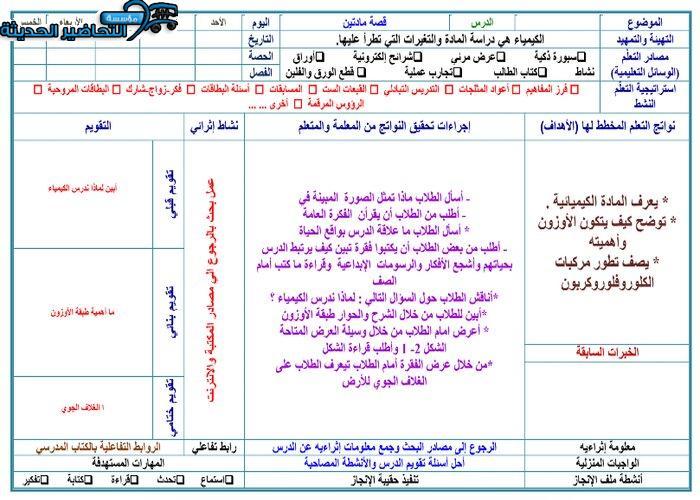 مؤسسة
التحاضير الحديثة
الموضوع
الدرس
قصة مادتين
اليوم
الأحد
الأربعاء
الخميس
التهيئة والتمهيد
الكيمياء هي دراسة المادة والتغيرات التي تطرأ عليها.
التاريخ
مصادر التعلم
(الوسائل التعليمية)
□سبورة ذكية □عرض مرئي □شرائح إلكترونية □أوراق
نشاط □كتاب الطالب □تجارب عملية □ قطع الورق والفلين
الحصة
الفصل
استراتيجية التعلم
النشط
□ فرز المفاهيم □ أعواد المثلجات □ التدريس التبادلي □ القبعات الست □ المسابقات □ أسئلة البطاقات □ فكر-زواج-شارك □ البطاقات المروحية □
الرؤوس المرقمة □ أخرى ... ...
نواتج التعلم المخطط لها (الأهداف)
إجراءات تحقيق النواتج من المعلمة والمتعلم
نشاط إثرائي
التقويم
* يعرف المادة الكيميائية .
* توضح كيف يتكون الأوزون
وأهميته
* يصف تطور مركبات
الكلوروفلوروكربون
الخبرات السابقة
- أسأل الطلاب ماذا تمثل الصورة المبينة في
- أطلب من الطلاب أن يقرأن الفكرة العامة
- أسأل الطلاب ما علاقة الدرس بواقع الحياة
- أطلب من بعض الطلاب أن يكتبوا فقرة تبين كيف يرتبط الدرس
بحياتهم وأشجع الأفكار والرسومات الإبداعية وقراءة ما كتب أمام
الصف
*أناقش الطلاب حول السؤال التالي : لماذا ندرس الكيمياء ؟
*أبين للطلاب من خلال الشرح والحوار طبقة الأوزون
* أعرض امام الطلاب من خلال وسيلة العرض المتاحة
الشكل 2- 1 وأطلب قراءة الشكل
*من خلال عرض الفقرة أمام الطلاب تيعرف الطلاب على
الغلاف الجوي للأرض
عمل بحث بالرجوع الى مصادر المكتبة والانترنت
تقويم قبلي
أبين لماذا ندرس الكيمياء
تقويم بنائي
ما اهمية طبقة الأوزون
تقويم ختامي
ا الغلاف الجوي
معلومة إثراءية
الرجوع إلى مصادر البحث وجمع معلومات إثراءيه عن الدرس
رابط تفاعلي
الروابط التفاعلية بالكتاب المدرسي
الواجبات المنزلية
أحل أسئلة تقويم الدرس والأنشطة المصاحبة
المهارات المستهدفة
أنشطة ملف الإنجاز
تنفيذ حقيبة الإنجاز
□استماع □تحدث □قراءة □كتابة □تفكير